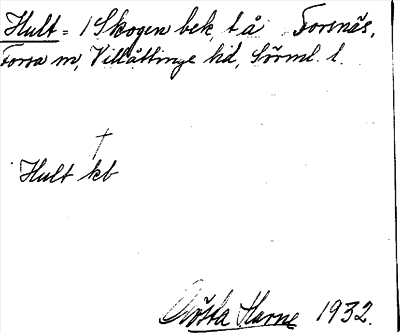 Hult = /Skogen bek, t å Forsnäs,
Forsa m, Villåttinge hd, Sörml. l.
†
Hult kb
Gösta Harne 1932.